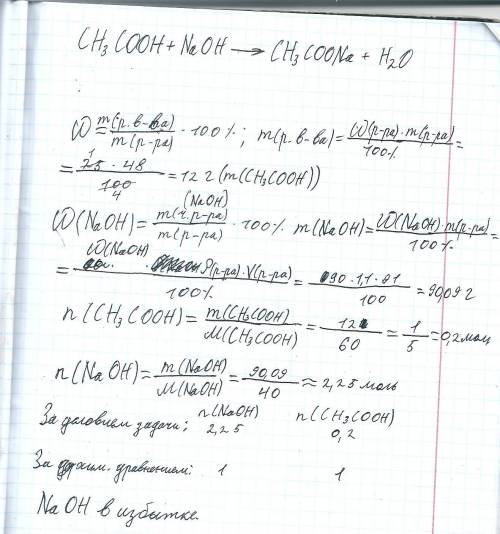 CH₃COOH + NaOH → CH₃COONa + H₂O
ω = m(р.в-ва) / m(р-ра) · 100%; m(р.в-ва) = ω(р-ра) · m(р-ра) / 100% =
= 25 · 48 / 100 = 12 г (m(CH₃COOH))
ω(NaOH) = m(ч.р-ра) (NaOH) / m(р-ра) · 100% m(NaOH) = ω(NaOH) · m(р-ра) / 100% =
= ω(NaOH) · ρ(р-ра) · V(р-ра) / 100% = 90 · 1,1 · 91 / 100 = 90,09 г
n(CH₃COOH) = m(CH₃COOH) / M(CH₃COOH) = 12 / 60 = 1 / 5 = 0,2 моль
n(NaOH) = m(NaOH) / M(NaOH) = 90,09 / 40 ≈ 2,25 моль
За условием задачи: n(NaOH) n(CH₃COOH)
2,25 0,2
За хим. уравнением: 1 1
NaOH в избытке.